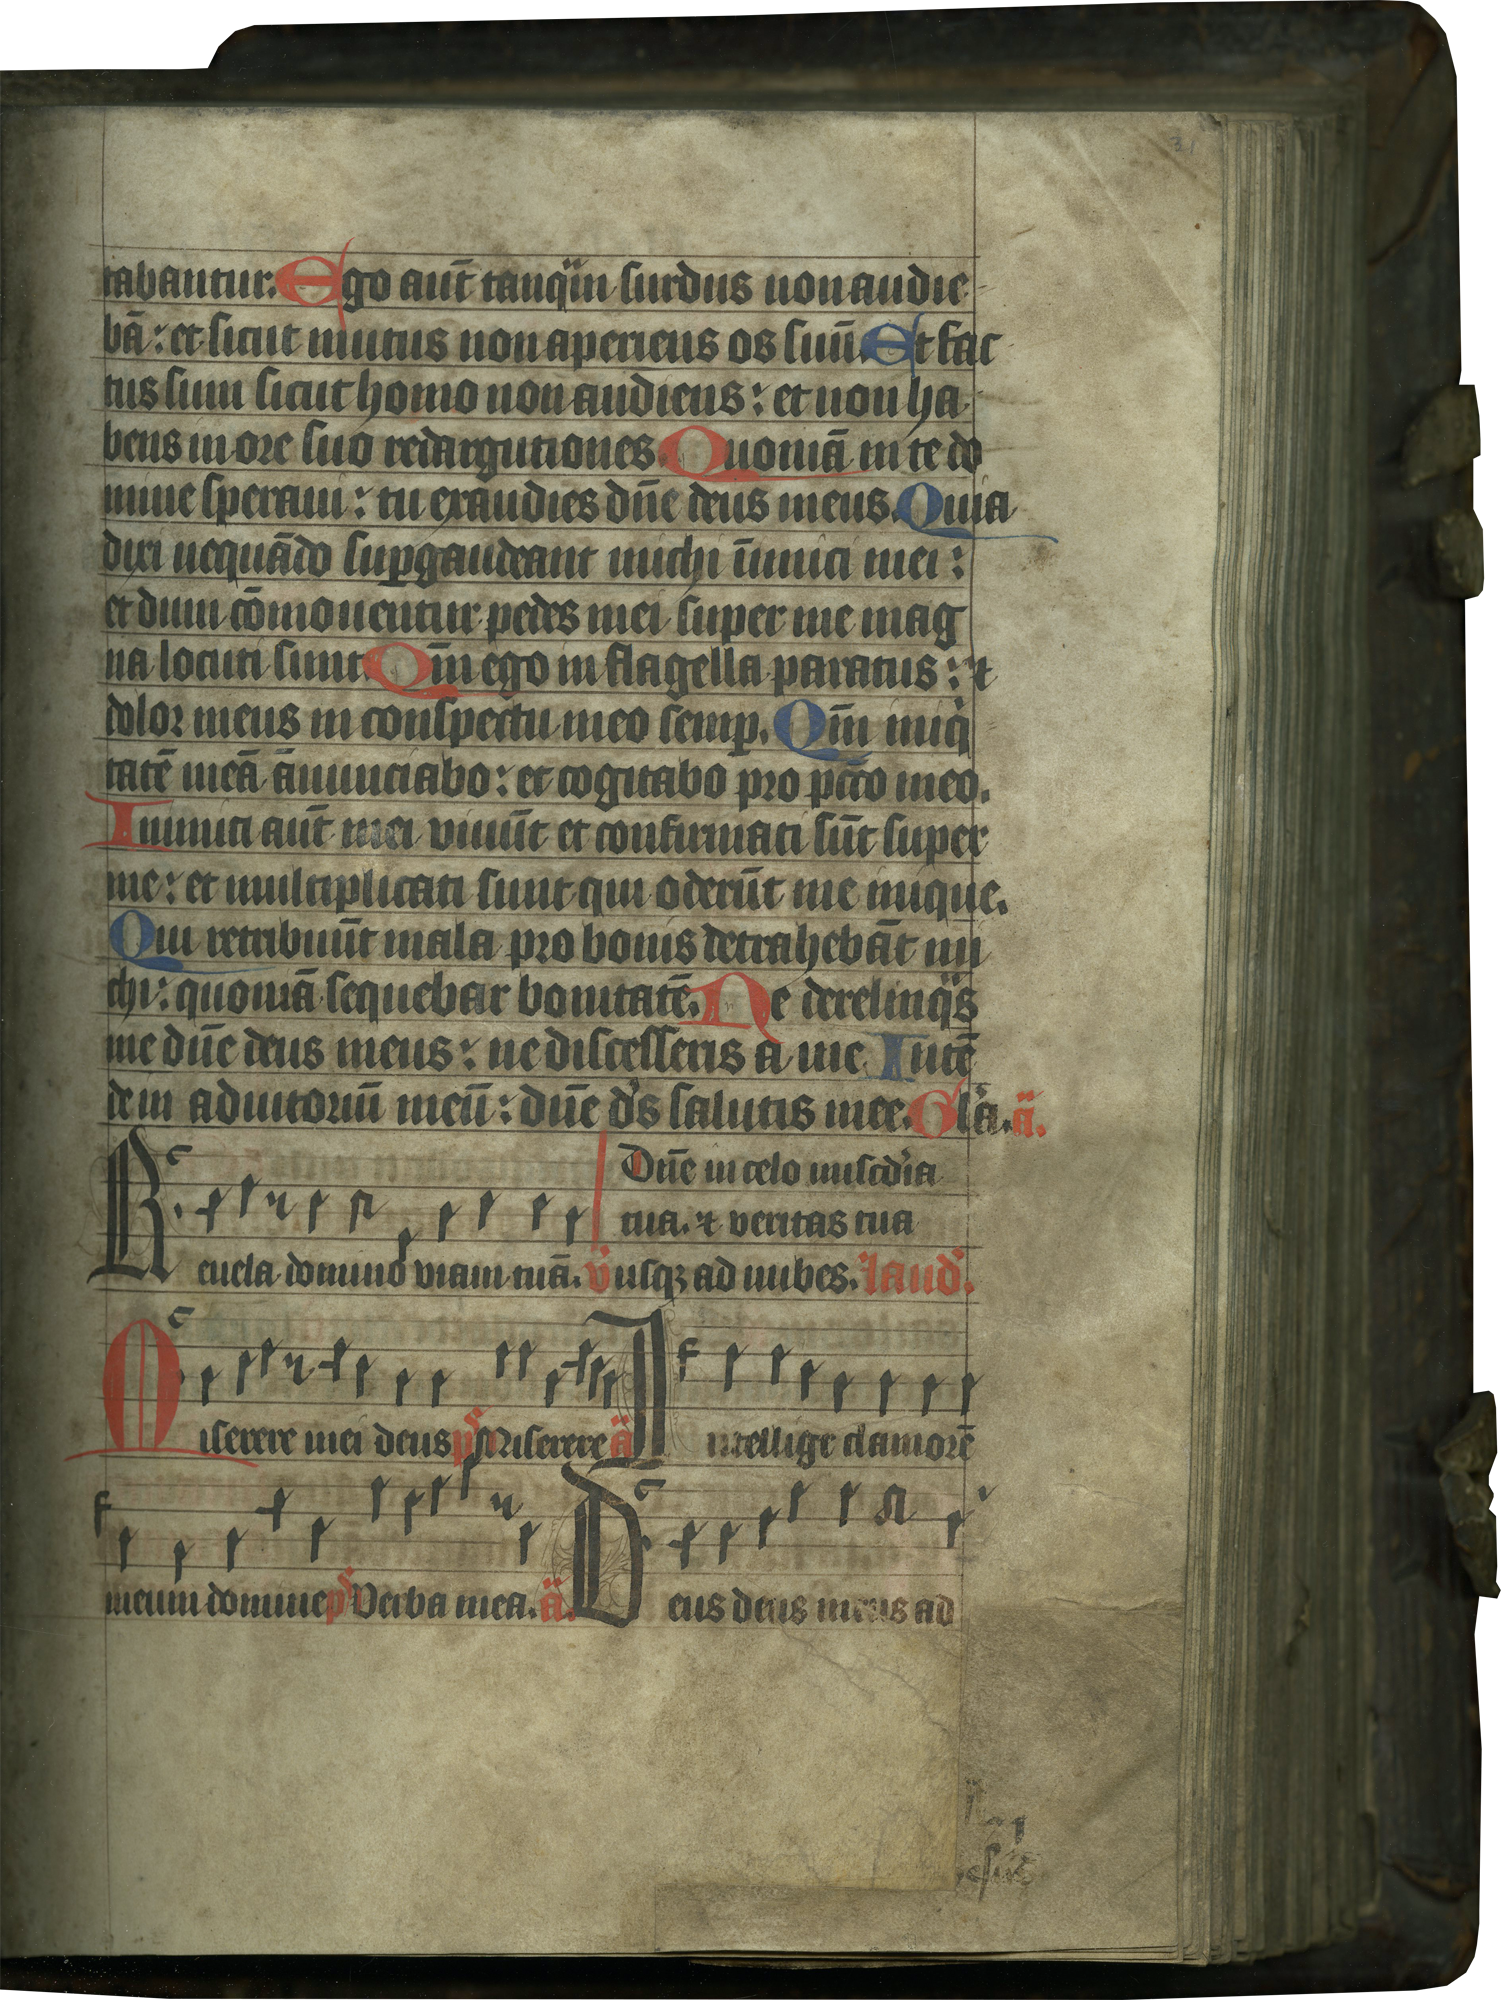 31
tabantur. Ego aut̄ tanq̈m surdus non audie
bā : et sicut mutus non aperiens os suū. Et fac
tus sum sicut homo non audiens : et non ha
bens in ore suo redargutiones. Quoniā in te do
mine speraui : tu exaudies dn̄e deus meus. Quia
dixi nequādo suꝑgaudeant michi īimici mei :
et dum cōmouentur pedes mei super me mag
na locuti sunt. Qm̄ ego in flagella paratus : ⁊
dolor meus in conspectu meo semꝑ. Qm̄ iniqͥ
tatē meā ānunciabo : et cogitabo pro pctō meo.
Inimici aut̄ mei viuūt et confirmati sūt super
me : et multiplicati sunt qui oderūt me inique.
Qui retribuūt mala pro bonis detrahebāt mi
chi : quoniā sequebar bonitatē. Ne derelinqͣs
me dn̄e deus meus : ne discesseris a me. Intē
de in adiutoriū meū : dn̄e ds̄ salutis mee. Gl̄a. a̅.
Dn̄e in celo miscd̄ia
tua. ⁊ veritas tua
Reuela domino viam tuā. v̄ usqꝫ ad nubes. laud̄.
Miserere mei deus ps̄ Miserere a̅ Intellige clamorē
meum domine ps̄ Verba mea. a̅. Deus deus meus ad